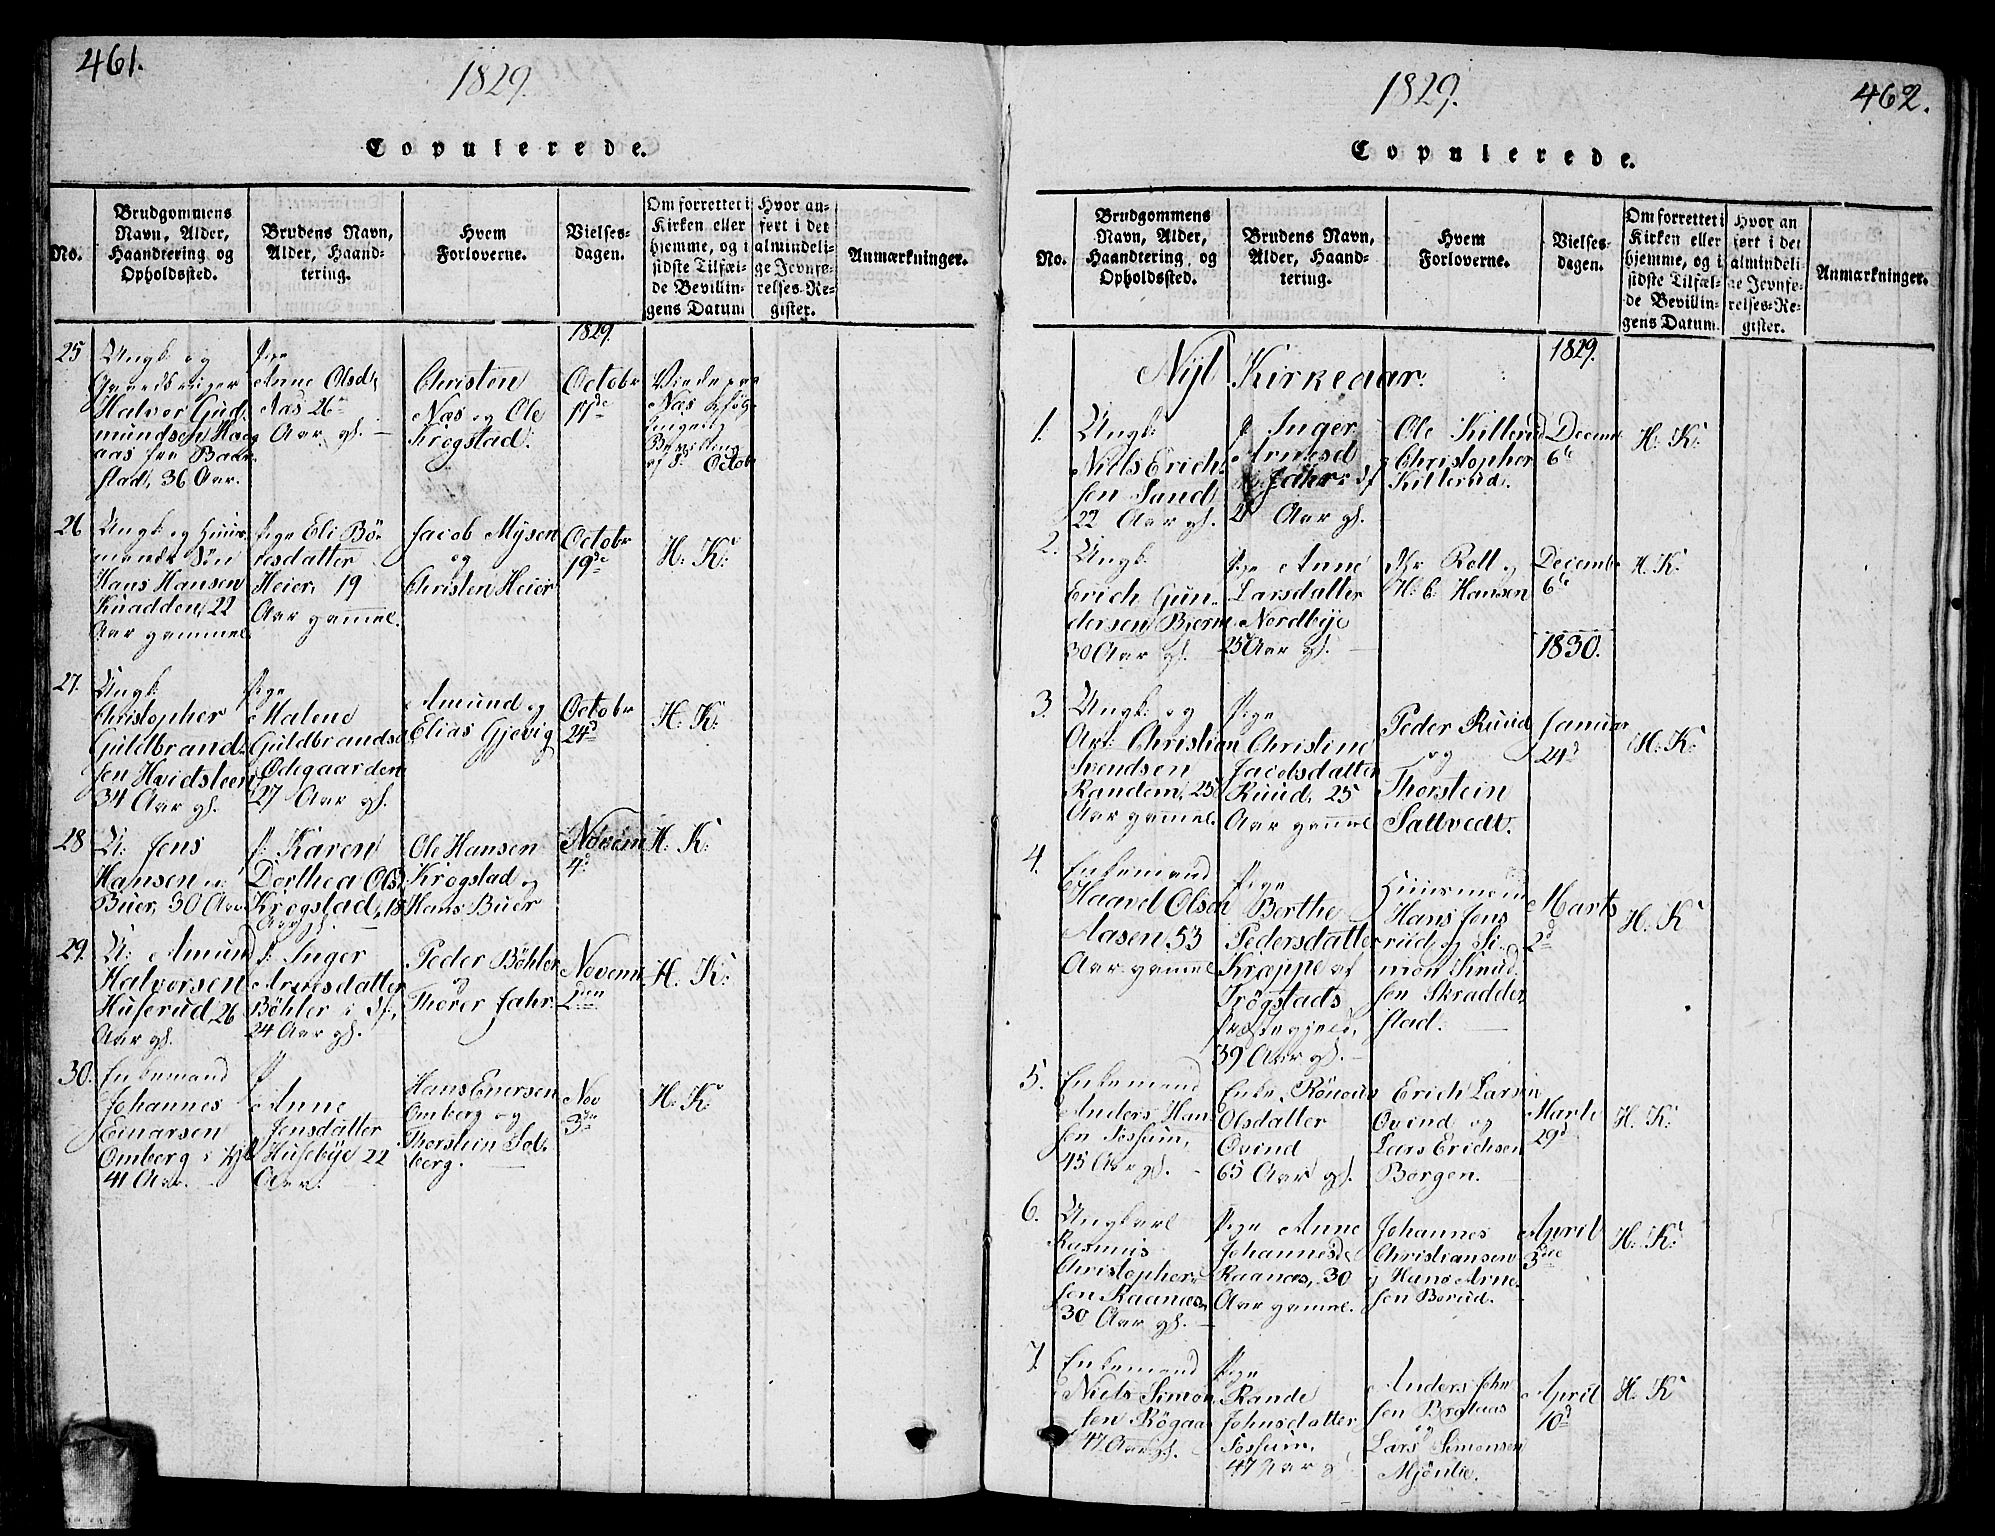 461.
1829.
Copulerede.
No.
Brudgommens
Navn, Alder,
Haandtering og
Opholdssted.
Brudens Navn,
Alder, Haand-
tering.
Hvem
Forloverne.
Vielses-
dagen.
Om forrettet i
Kirken eller
hjemme, og i
sidste Tilfæl-
de Bevillin-
gens Datum.
Hvor an-
ført i det
almindeli-
ge Jevnfø-
relses-Re-
gister.
Anmærkninger.
1829.
25
Ungk. og
Halvor Gud
mundsen
stad, 36 Aar.
Pige
Anne Olsd.
Næs 26
Aar gl.
Christen
Næs og Ole
Krogstad.
Octobr
17de
Næs
Octobr
26
Ungk og Huus
mands Søn
Hans Hansen
Knadden, 22
Aar gammel
Pige Eli Bø
esdatter
Heier, 19
Aar gammel.
Jacob Mysen
og
Christen Heier
Octobr
19de
H: K:
27.
Ungk.
Christopher
Guldbrand-
sen Hvidsteen
34 Aar gl.
Pige
Malene
Guldbrandsd
Ødegaarden
27 Aar gl.
Amund og
Elias Gjøvig
Octobr
24d
H: K:
28
U: Jens
Hansen
Buer, 30 Aar
P: Karen
Dorthea Ols
Krogstad, 18
Aar gl.
Ole Hansen
Krogstad og
Hans Buer
Novem
4d
H: K:
29.
U: Amund
Halvorsen
Huserud, 26
Aar gl.
P: Inger
Arnesdatter
Bøhler i Sp.
24 Aar gl.
Peder Bøhler
og
Thorer Jahr.
Novem
2den
H: K:
30.
Enkemand
Johannes
Einarsen
Omberg i
41 Aar.
P
Anne
Jensdatter
Husebye 22
Aar.
Hans Enersen
Omberg og
Thorstein Sol
berg.
Nov
3die
H: K:
1829.
462.
Copulerede.
No.
Brudgommens
Navn, Alder,
Haandtering og
Opholdssted.
Brudens Navn,
Alder, Haand-
tering.
Hvem
Forloverne.
Vielses-
dagen.
Om forrettet i
Kirken eller
hjemme, og i
sidste Tilfæl-
de Bevillin-
gens Datum.
Hvor an
ført i det
almindeli
ge Jevnfø-
relses-Re-
gister.
Anmærkninger.
Nyt Kirkeaar.
1829.
1.
Ungk.
Niels Erich
sen Sand
22 Aar gl.
P Inger
Arnesd
Jahr
21 Aar gl.
Ole Killerud
Christopher
Killerud.
Decem
6te
H: K:
2.
Ungk.
Erich Gun-
dersen Bjerne
30 Aar gl.
Pige Anne
Larsdatter
Nordbye
25 Aar gl.
Hr Roll og
H: C: Hansen
Decemb
6te
H: K:
1830.
3.
Ungk: og
Christian
Svendsen
Randem, 25
Aar gammel.
Pige
Christine
Jacobsdatter
Ruud, 25
Aar gammel
Peder Ruud
og
Thorstein
Saltvedt.
Januar
24d
H: K:
4.
Enkemand
Haavel Olsen
Aasen 53
Aar gammel
Pige
Berthe
Pedersdatter
Krappe af
Trøgstads
Præstegjeld,
39 Aar gl.
Huusmænd
Hans Jens
rud og Si-
mon Knud
sen Skradder
stad.
Marts
2d
H: K:
5.
Enkemand
Anders Han
sen Fossum,
45 Aar gl.
Enke Rønoug
Olsdatter
Ovind
65 Aar gl.
Erich Larsen
Ovind og
Lars Erichsen
Borgen.
Marts
29d
H: K:
6.
Ungkarl
Rasmus
Christopher
sen Raanæs
30 Aar gl.
Pige Anne
Johannesd
Raanæs, 30
Aar gammel.
Johannes
Christiansen
og Hans Arne
sen Borud.
April
3die
H: K:
7.
Enkemand
Niels Simon
sen Røgaas
47 Aar gl.
Pige
Rande
Johnsdatter
Fossum,
47 Aar g
Anders John
sen Brataas
og
Lars Simonsen
Mjønlie.
April
10d
H: K: